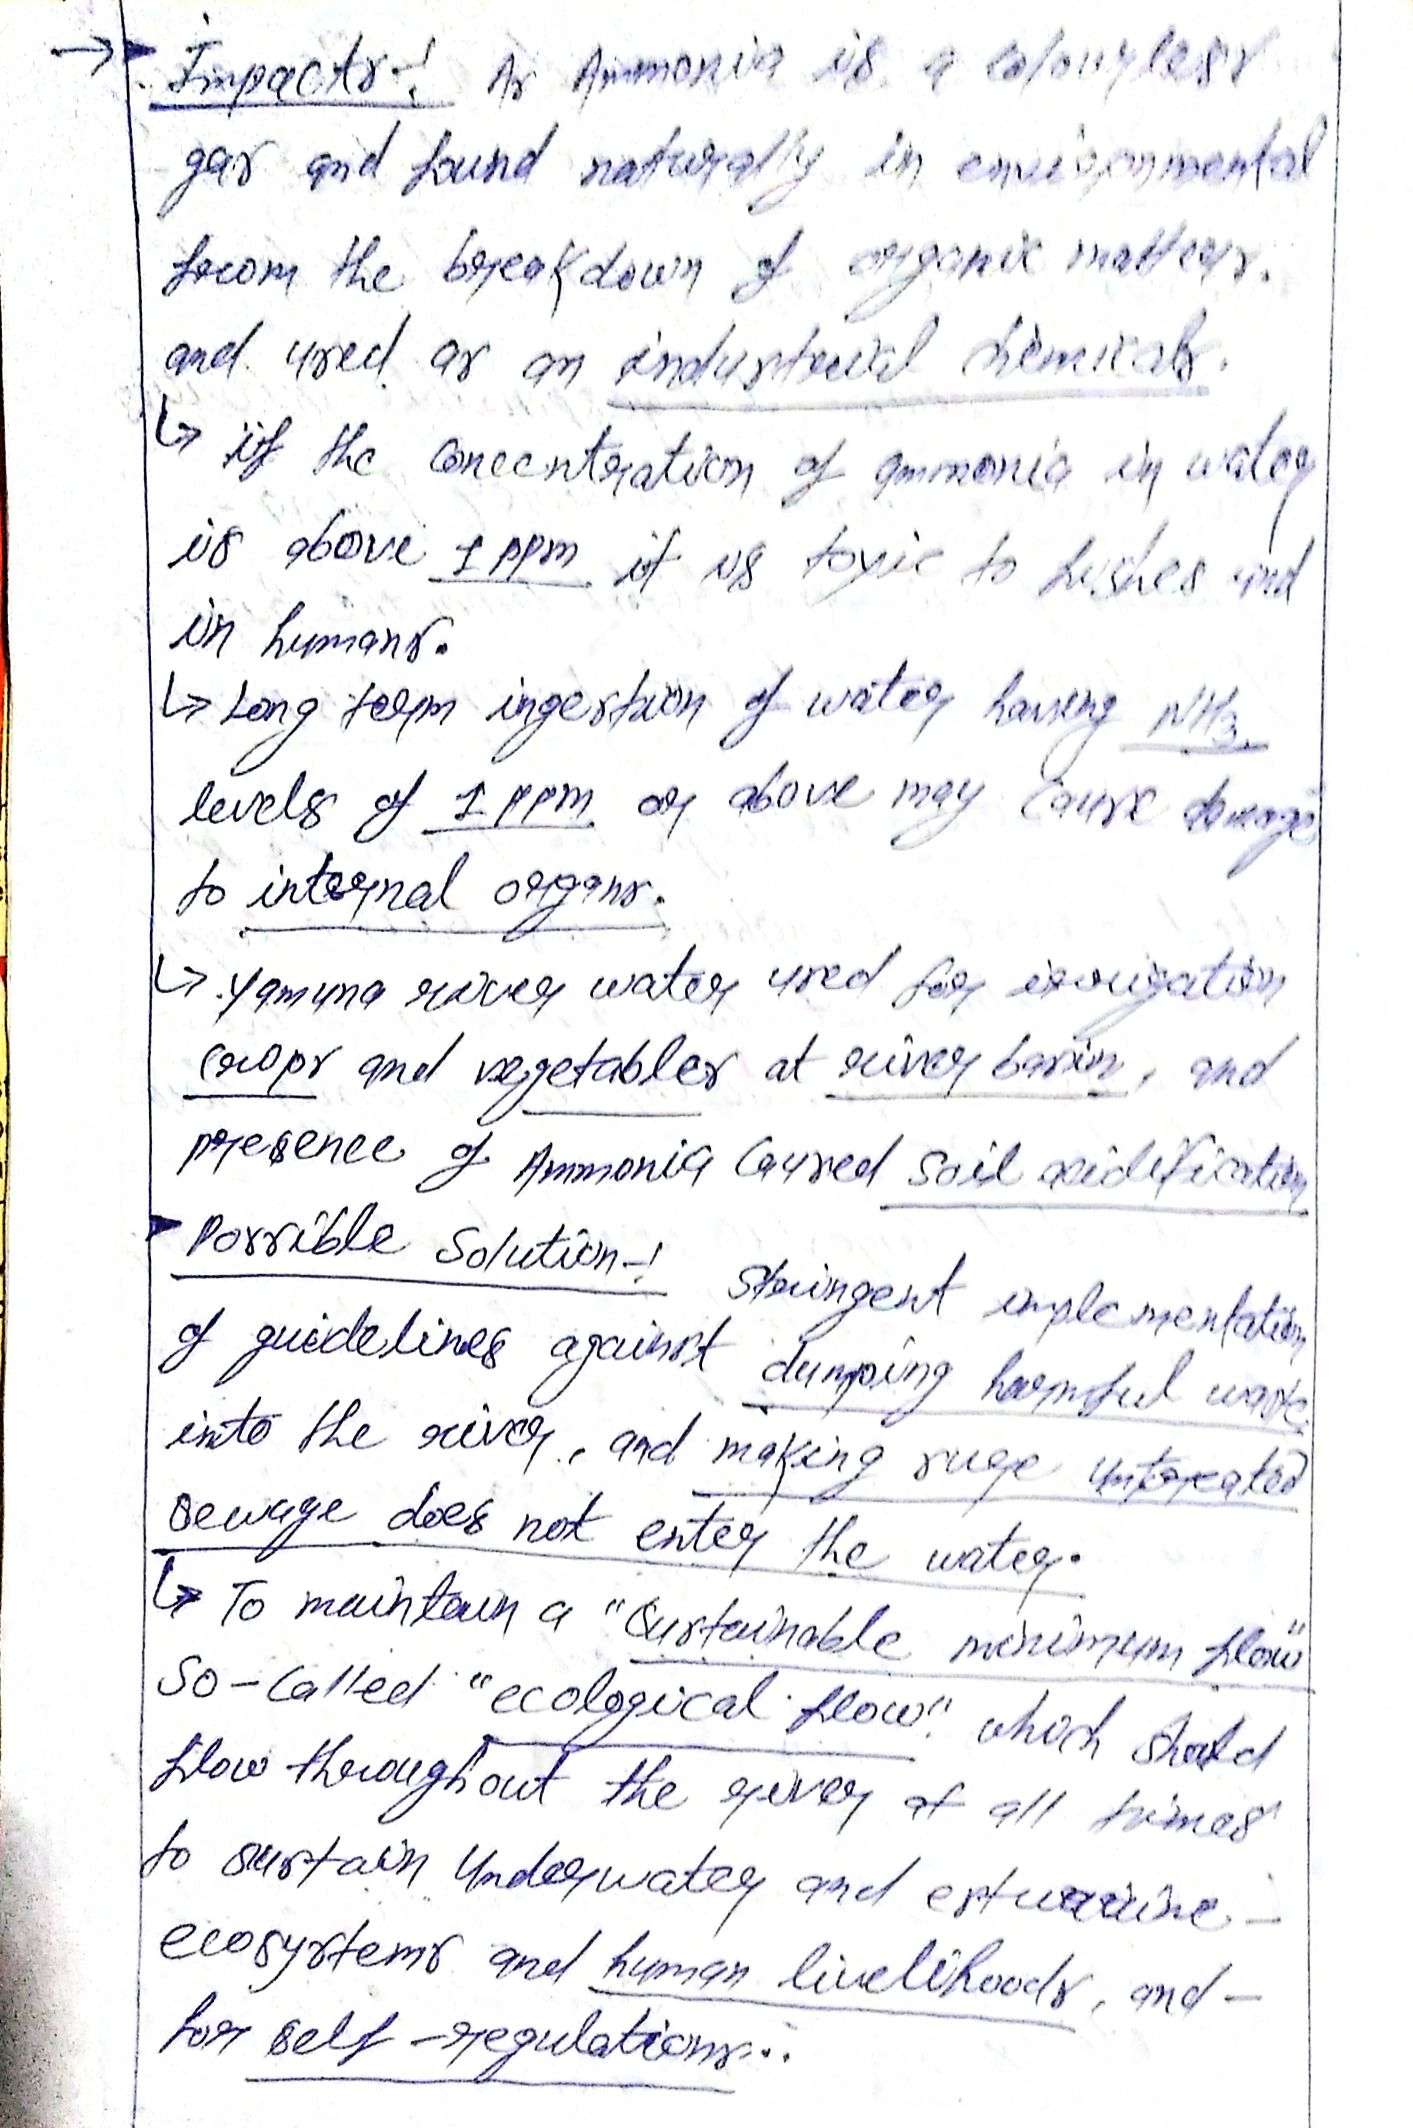 → Impacts:- As Ammonia is a colourless
gas and found naturally in environmental
from the breakdown of organic matters.
and used as an industrial chemicals.
↳ if the concentration of ammonia in water
is above 1 ppm it is toxic to fishes and
in humans.
↳ Long term ingestion of water having NH3
levels of 1 ppm or above may cause damage
to internal organs.
↳ Yamuna river water used for irrigation
crops and vegetables at river basin, and
presence of Ammonia caused soil acidification
Possible Solution:- Stringent implementation
of guidelines against dumping harmful waste
into the river, and making sure untreated
sewage does not enter the water.
↳ To maintain a "Sustainable minimum flow"
so-called "ecological flow" which should
flow throughout the river at all times
to sustain Underwater and estuarine -
ecosystems and human livelihoods, and -
for self-regulations..